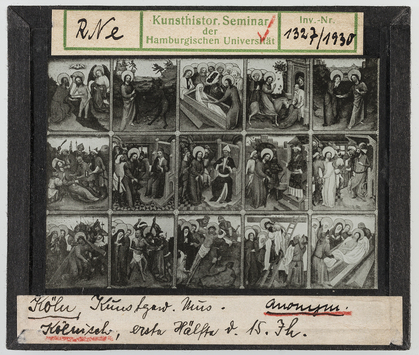 R Ne
Kunsthistor. Seminar
der
Hamburgischen Universität
Inv.-Nr.
1327/1930
Köln, Kunstgew. Mus. Anonym.
Kölnisch, erste Hälfte d. 15. Jh.